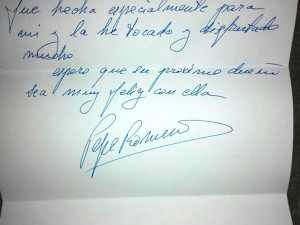 fue hecha especialmente para
mi y la he tocado y disfrutado
mucho
espero que su proximo dueño
sea muy feliz con ella
Pepe Romero